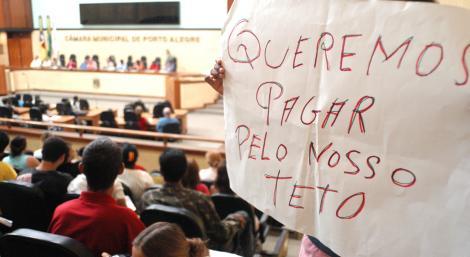 CÂMARA MUNICIPAL DE PORTO ALEGRE
QUEREMOS
PAGAR
PELO NOSSO
TETO